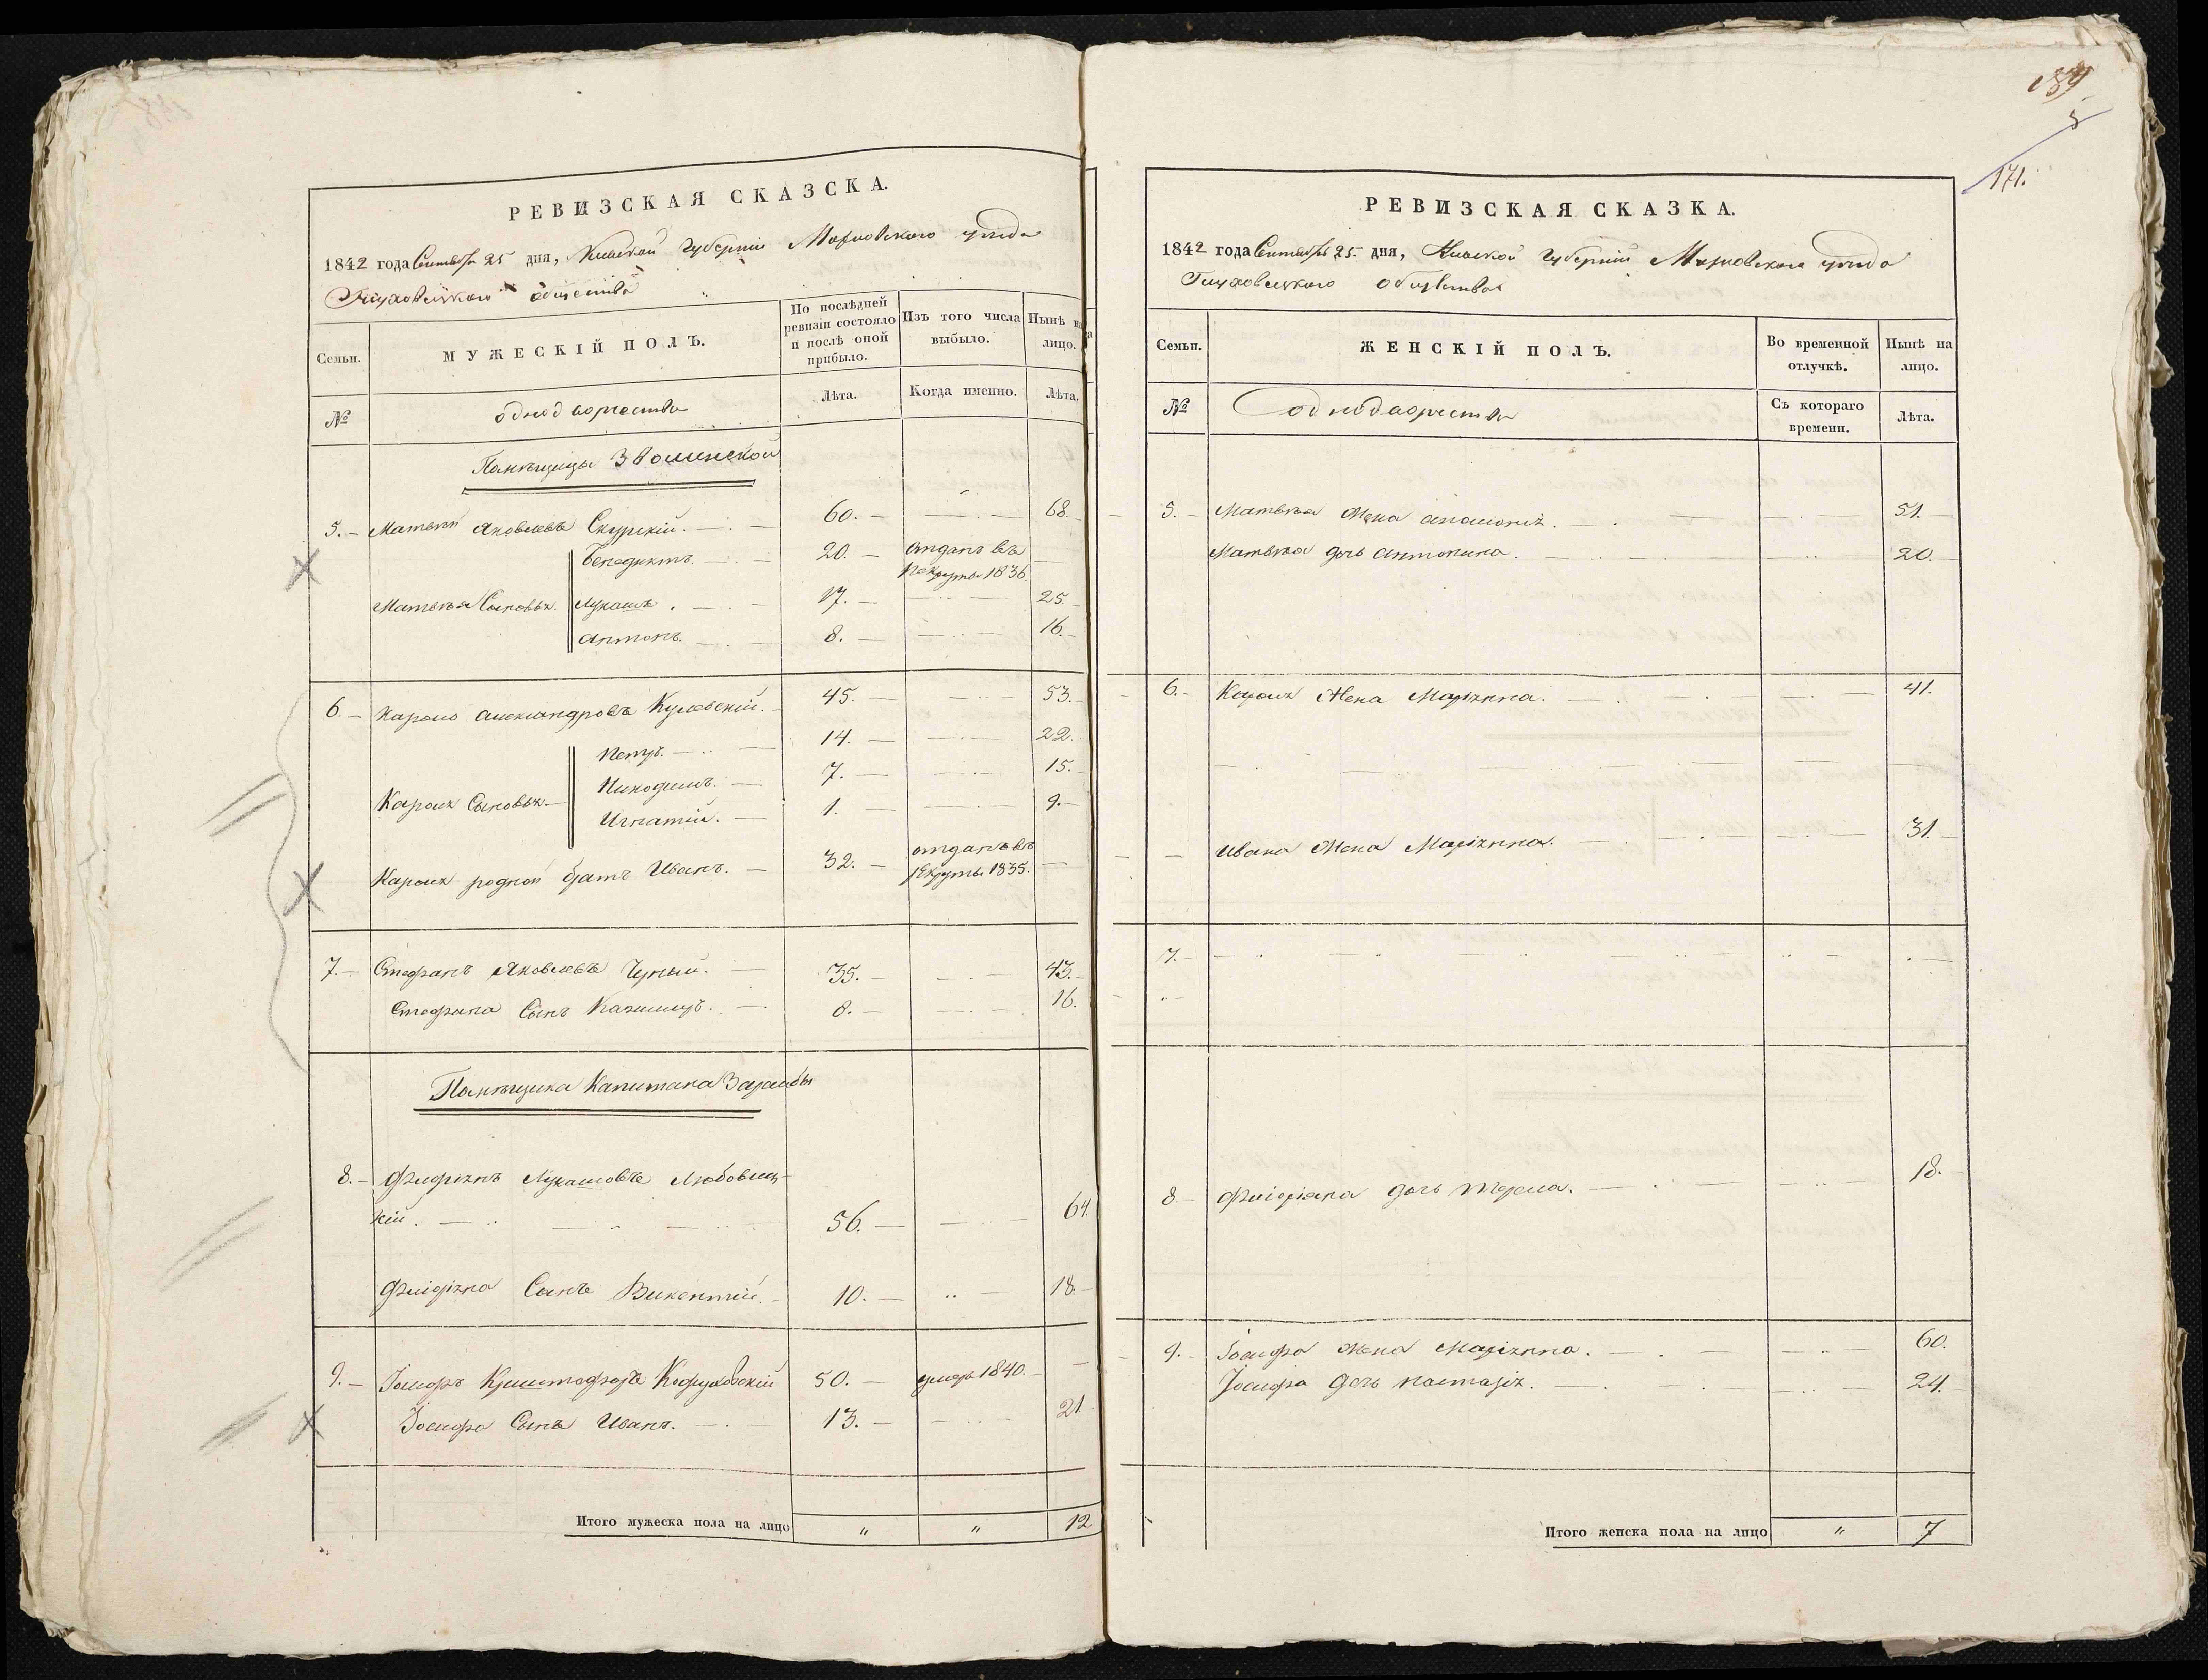 РЕВИЗСКАЯ СКАЗСКА.
1842 года Сентября 25 дня, Киевской Губерніи Махновского уѣзда
общества
Семьи.
МУЖЕСКІЙ ПОЛЪ.
По послѣдней ревизіи состояло и послѣ оной прибыло.
Изъ того числа выбыло.
Нынѣ на лицо.
№
однодворчества
Лѣта.
Когда именно.
Лѣта.
Помѣщицы Зволинской
5. Матвѣй Яковлевъ Скурскій. 60. 68.
Бенедиктъ. 20. отданъ въ
рекруты 1836.
Матвѣя Сыновья. Лукашъ. 17. 25.
Антонъ. 8. 16.
6. Кароль Александровъ Кулевскій. 45. 53.
Петръ. 14. 22.
Никодимъ. 7. 15.
Кароля Сыновья
Игнатій. 1. 9.
Кароля родной братъ Иванъ. 32. отданъ въ
рекруты 1835.
7. Стефанъ Яковлевъ Чурный. 35. 43.
Стефана Сынъ Казимиръ. 8. 16.
Помѣщика Капитана Зарембы
8. Флоріянъ Лукашовъ Любовиц-
кій. 56. 64.
Флоріяна Сынъ Викентій. 10. 18.
9. Іосифъ Криштофовъ 50. умеръ 1840.
Іосифа Сынъ Иванъ. 13. 21
Итого мужеска пола на лицо " " 12
189
5
171.
РЕВИЗСКАЯ СКАЗКА.
1842 года Сентября 25. дня, Киевской Губерніи Махновского уѣзда
общества
Семьи.
ЖЕНСКІЙ ПОЛЪ.
Во временной отлучкѣ.
Нынѣ на лицо.
№
однодворчества
Съ котораго времени.
Лѣта.
5. Матвѣя Жена Аполонія. 51.
Матвѣя дочь Антонина. 20.
6. Кароля Жена Маріянна. 41.
Ивана Жена Маріянна. 31.
7.
8. Флоріяна дочь Текля. 18.
9. Іосифа Жена Маріянна. 60.
Іосифа дочь Настазія. 24.
Итого женска пола на лицо " 7